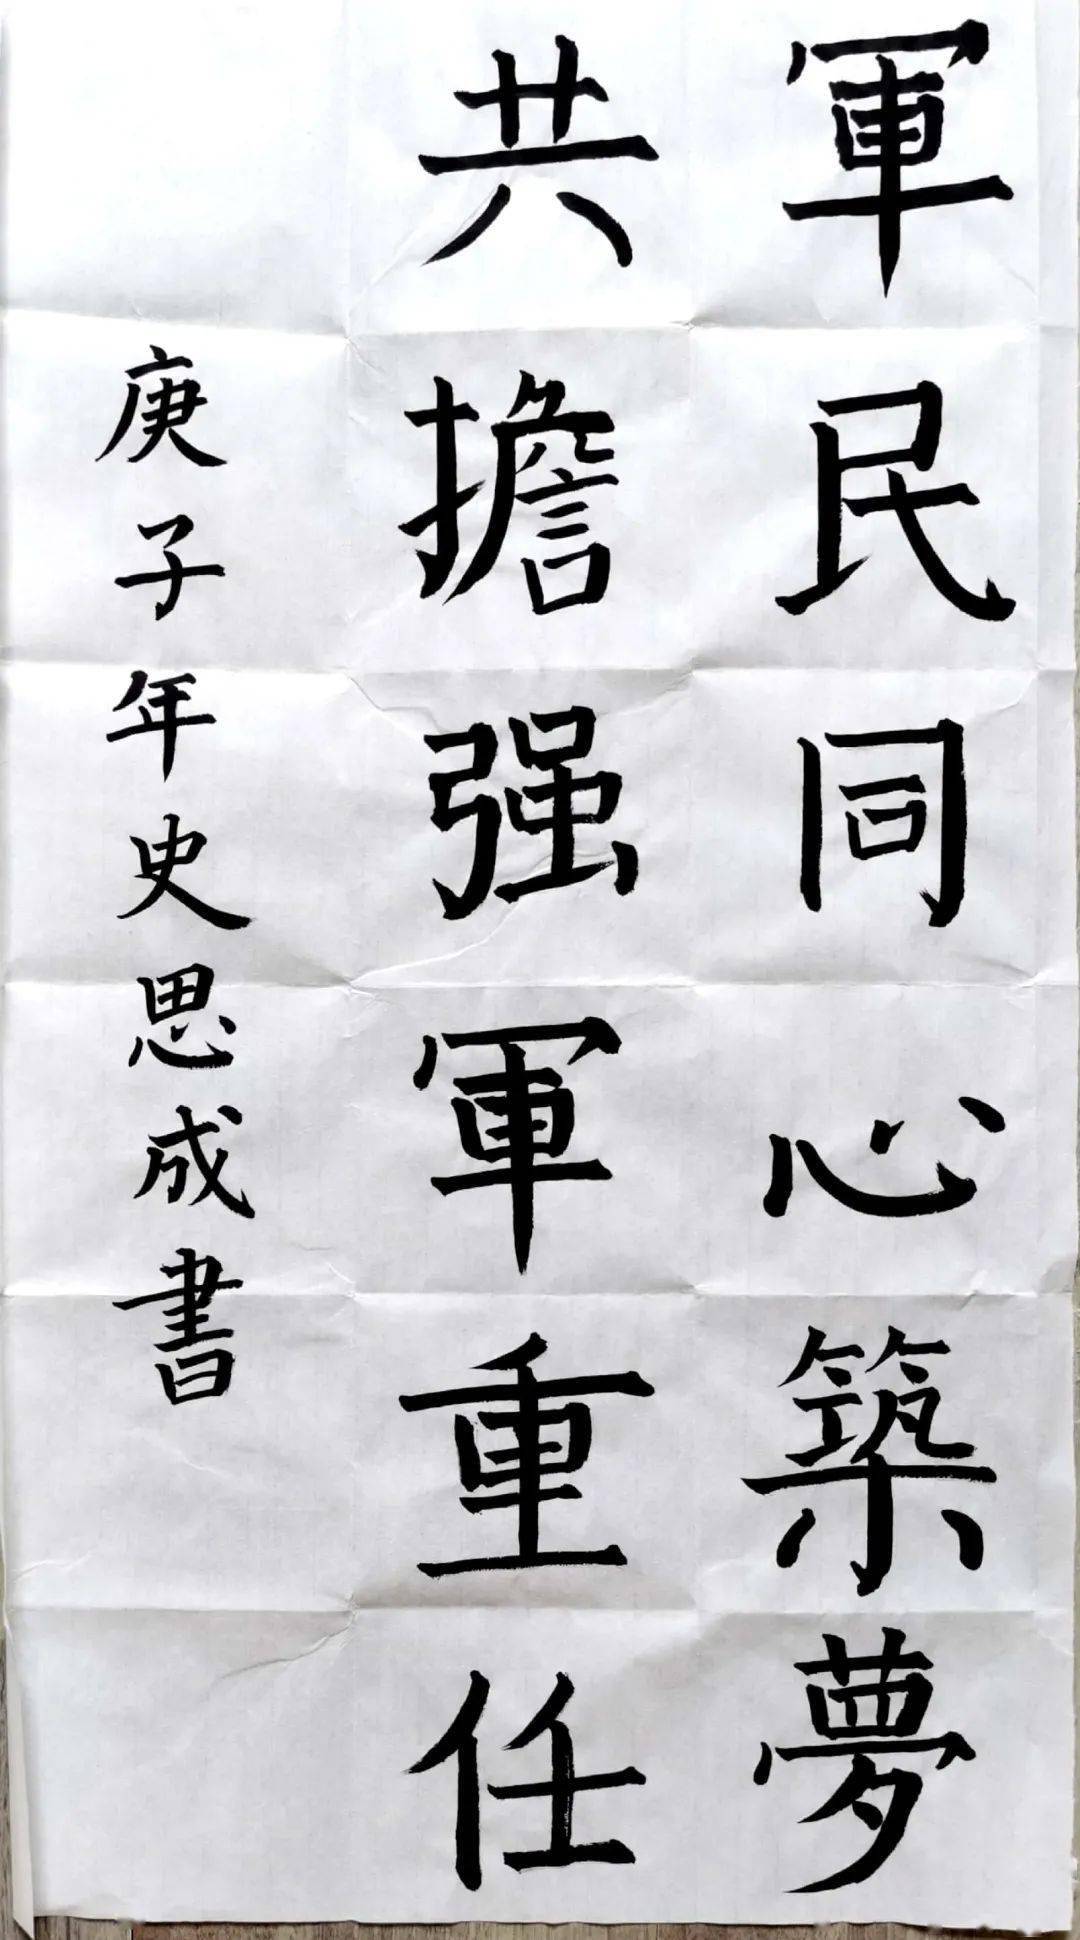 軍民同心築夢
共擔强軍重任
庚子年史思成書